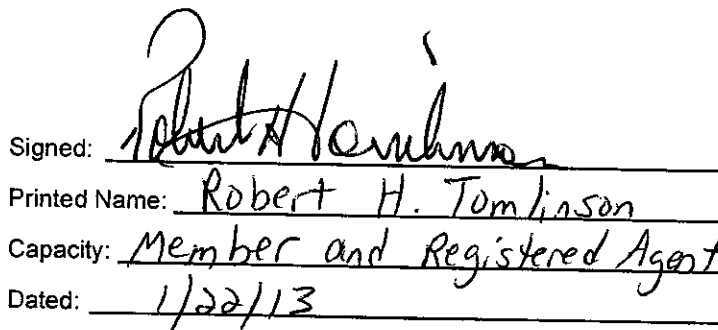 Signed: Robert H Tomlinson
Printed Name: Robert H. Tomlinson
Capacity: Member and Registered Agent
Dated: 1/22/13